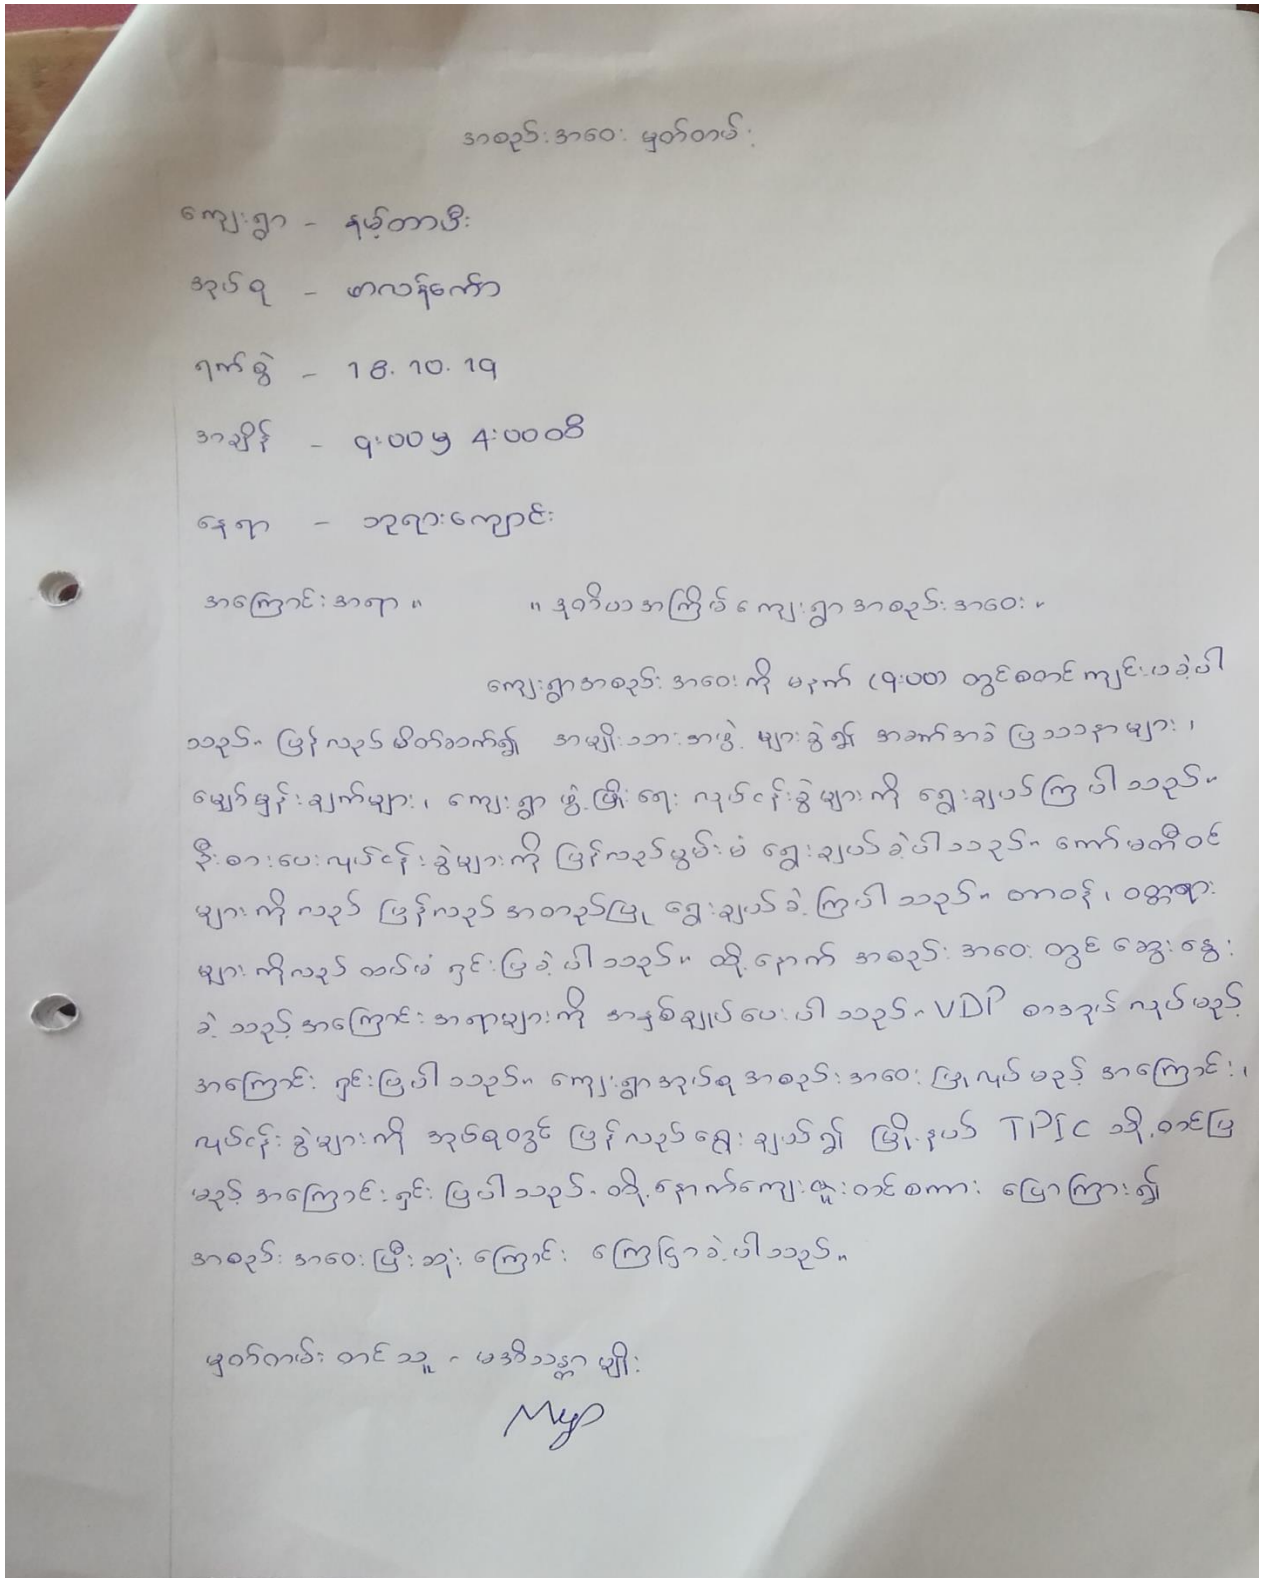 အစည်းအဝေး မှတ်တမ်း
ကျေးရွာ - နမ့်တာဖီး
အုပ်စု - ဖာလန်ကော်
ရက်စွဲ - 18.10.19
အချိန် - 9:00 မှ 4:00 ထိ
နေရာ - ဘုရားကျောင်း
အကြောင်းအရာ ။ ။ ဒုတိယအကြိမ် ကျေးရွာအစည်းအဝေး ။
ကျေးရွာအစည်းအဝေးကို မနက် (9:00) တွင်စတင်ကျင်းပခဲ့ပါ
သည်။ ပြန်လည်မိတ်ဆက်၍ အမျိုးသားအဖွဲ့ များခွဲ၍ အခက်အခဲ ပြဿနာများ ၊
မျှော်မှန်းချက်များ ၊ ကျေးရွာ ဖွံ့ဖြိုးရေး လုပ်ငန်းခွဲများကို ရွေးချယ်ကြပါသည်။
ဦးစားပေးလုပ်ငန်းခွဲများကို ပြန်လည်မွမ်းမံ ရွေးချယ်ခဲ့ပါသည်။ ကော်မတီဝင်
များကိုလည်း ပြန်လည်အတည်ပြု ရွေးချယ်ခဲ့ကြပါသည်။ တာဝန် ၊ ဝတ္တရား
များကိုလည်း ထပ်မံ ရှင်းပြခဲ့ပါသည်။ ထို့နောက် အစည်းအဝေးတွင် ဆွေးနွေး
ခဲ့သည့်အကြောင်းအရာများကို အနှစ်ချုပ်ပေးပါသည်။ VDP စာအုပ် လုပ်မည့်
အကြောင်း ရှင်းပြပါသည်။ ကျေးရွာအုပ်စု အစည်းအဝေး ပြုလုပ်မည့် အကြောင်း ၊
လုပ်ငန်းခွဲများကို အုပ်စုတွင် ပြန်လည်ရွေးချယ်၍ မြို့နယ် TPIC သို့ တင်ပြ
မည့် အကြောင်း ရှင်းပြပါသည်။ ထို့နောက်ကျေးဇူးတင်စကား ပြောကြား၍
အစည်းအဝေးပြီးဆုံးကြောင်း ကြေငြာခဲ့ပါသည်။
မှတ်တမ်းတင်သူ - မအိသန္တာမျိုး